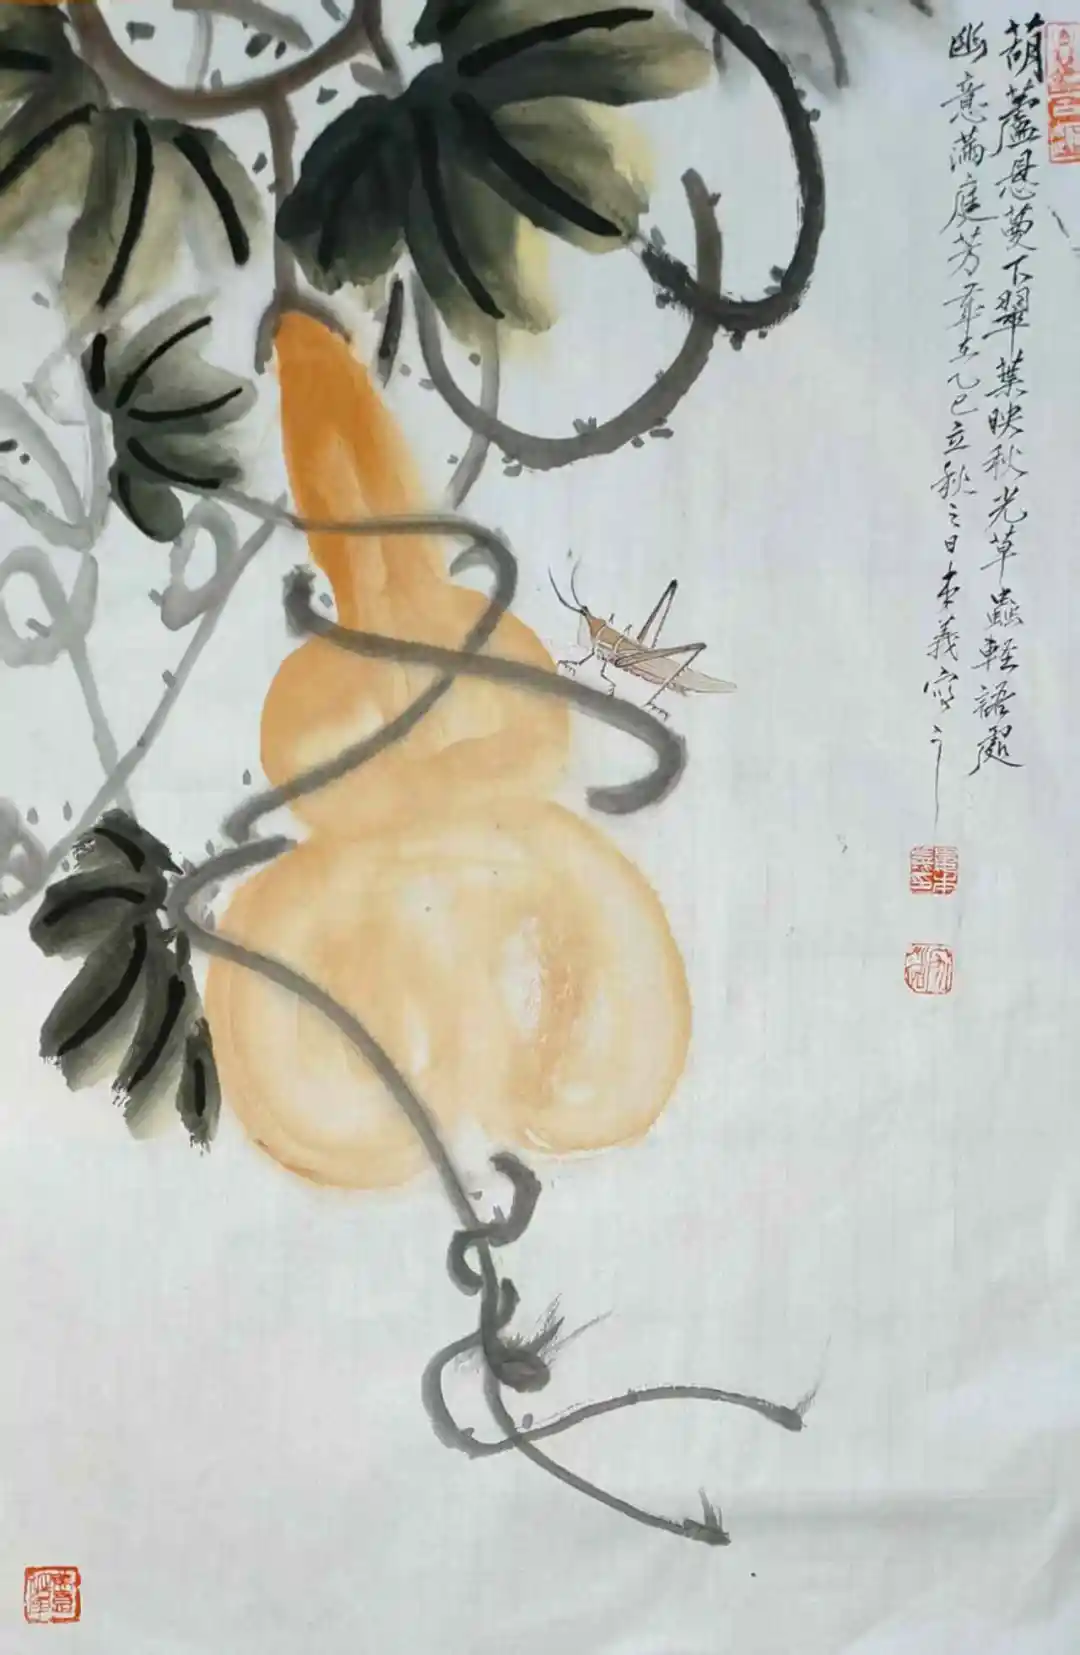 葫蘆悬蔓下翠葉映秋光草蟲輕語處
幽意满庭芳歲在乙巳立秋之日本義寫之